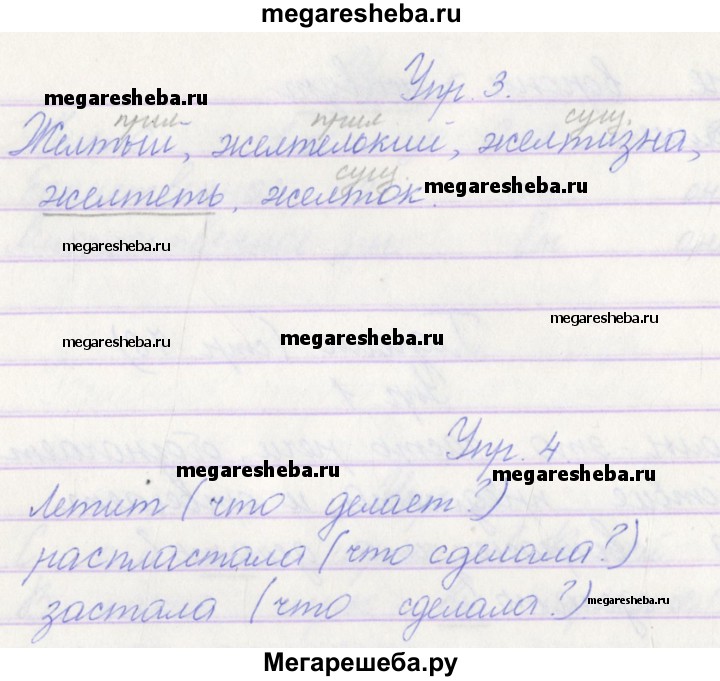 megaresheba.ru
Упр. 3.
megaresheba.ru
прил. прил. сущ.
Желтый, желтенький, желтизна,
сущ.
желтеть, желток.
megaresheba.ru
megaresheba.ru
megaresheba.ru
megaresheba.ru
megaresheba.ru
Упр. 4
megaresheba.ru
megaresheba.ru
Летит (что делает?)
распластала (что сделала?)
застала (что сделала?)
megaresheba.ru
Мегарешеба.ру